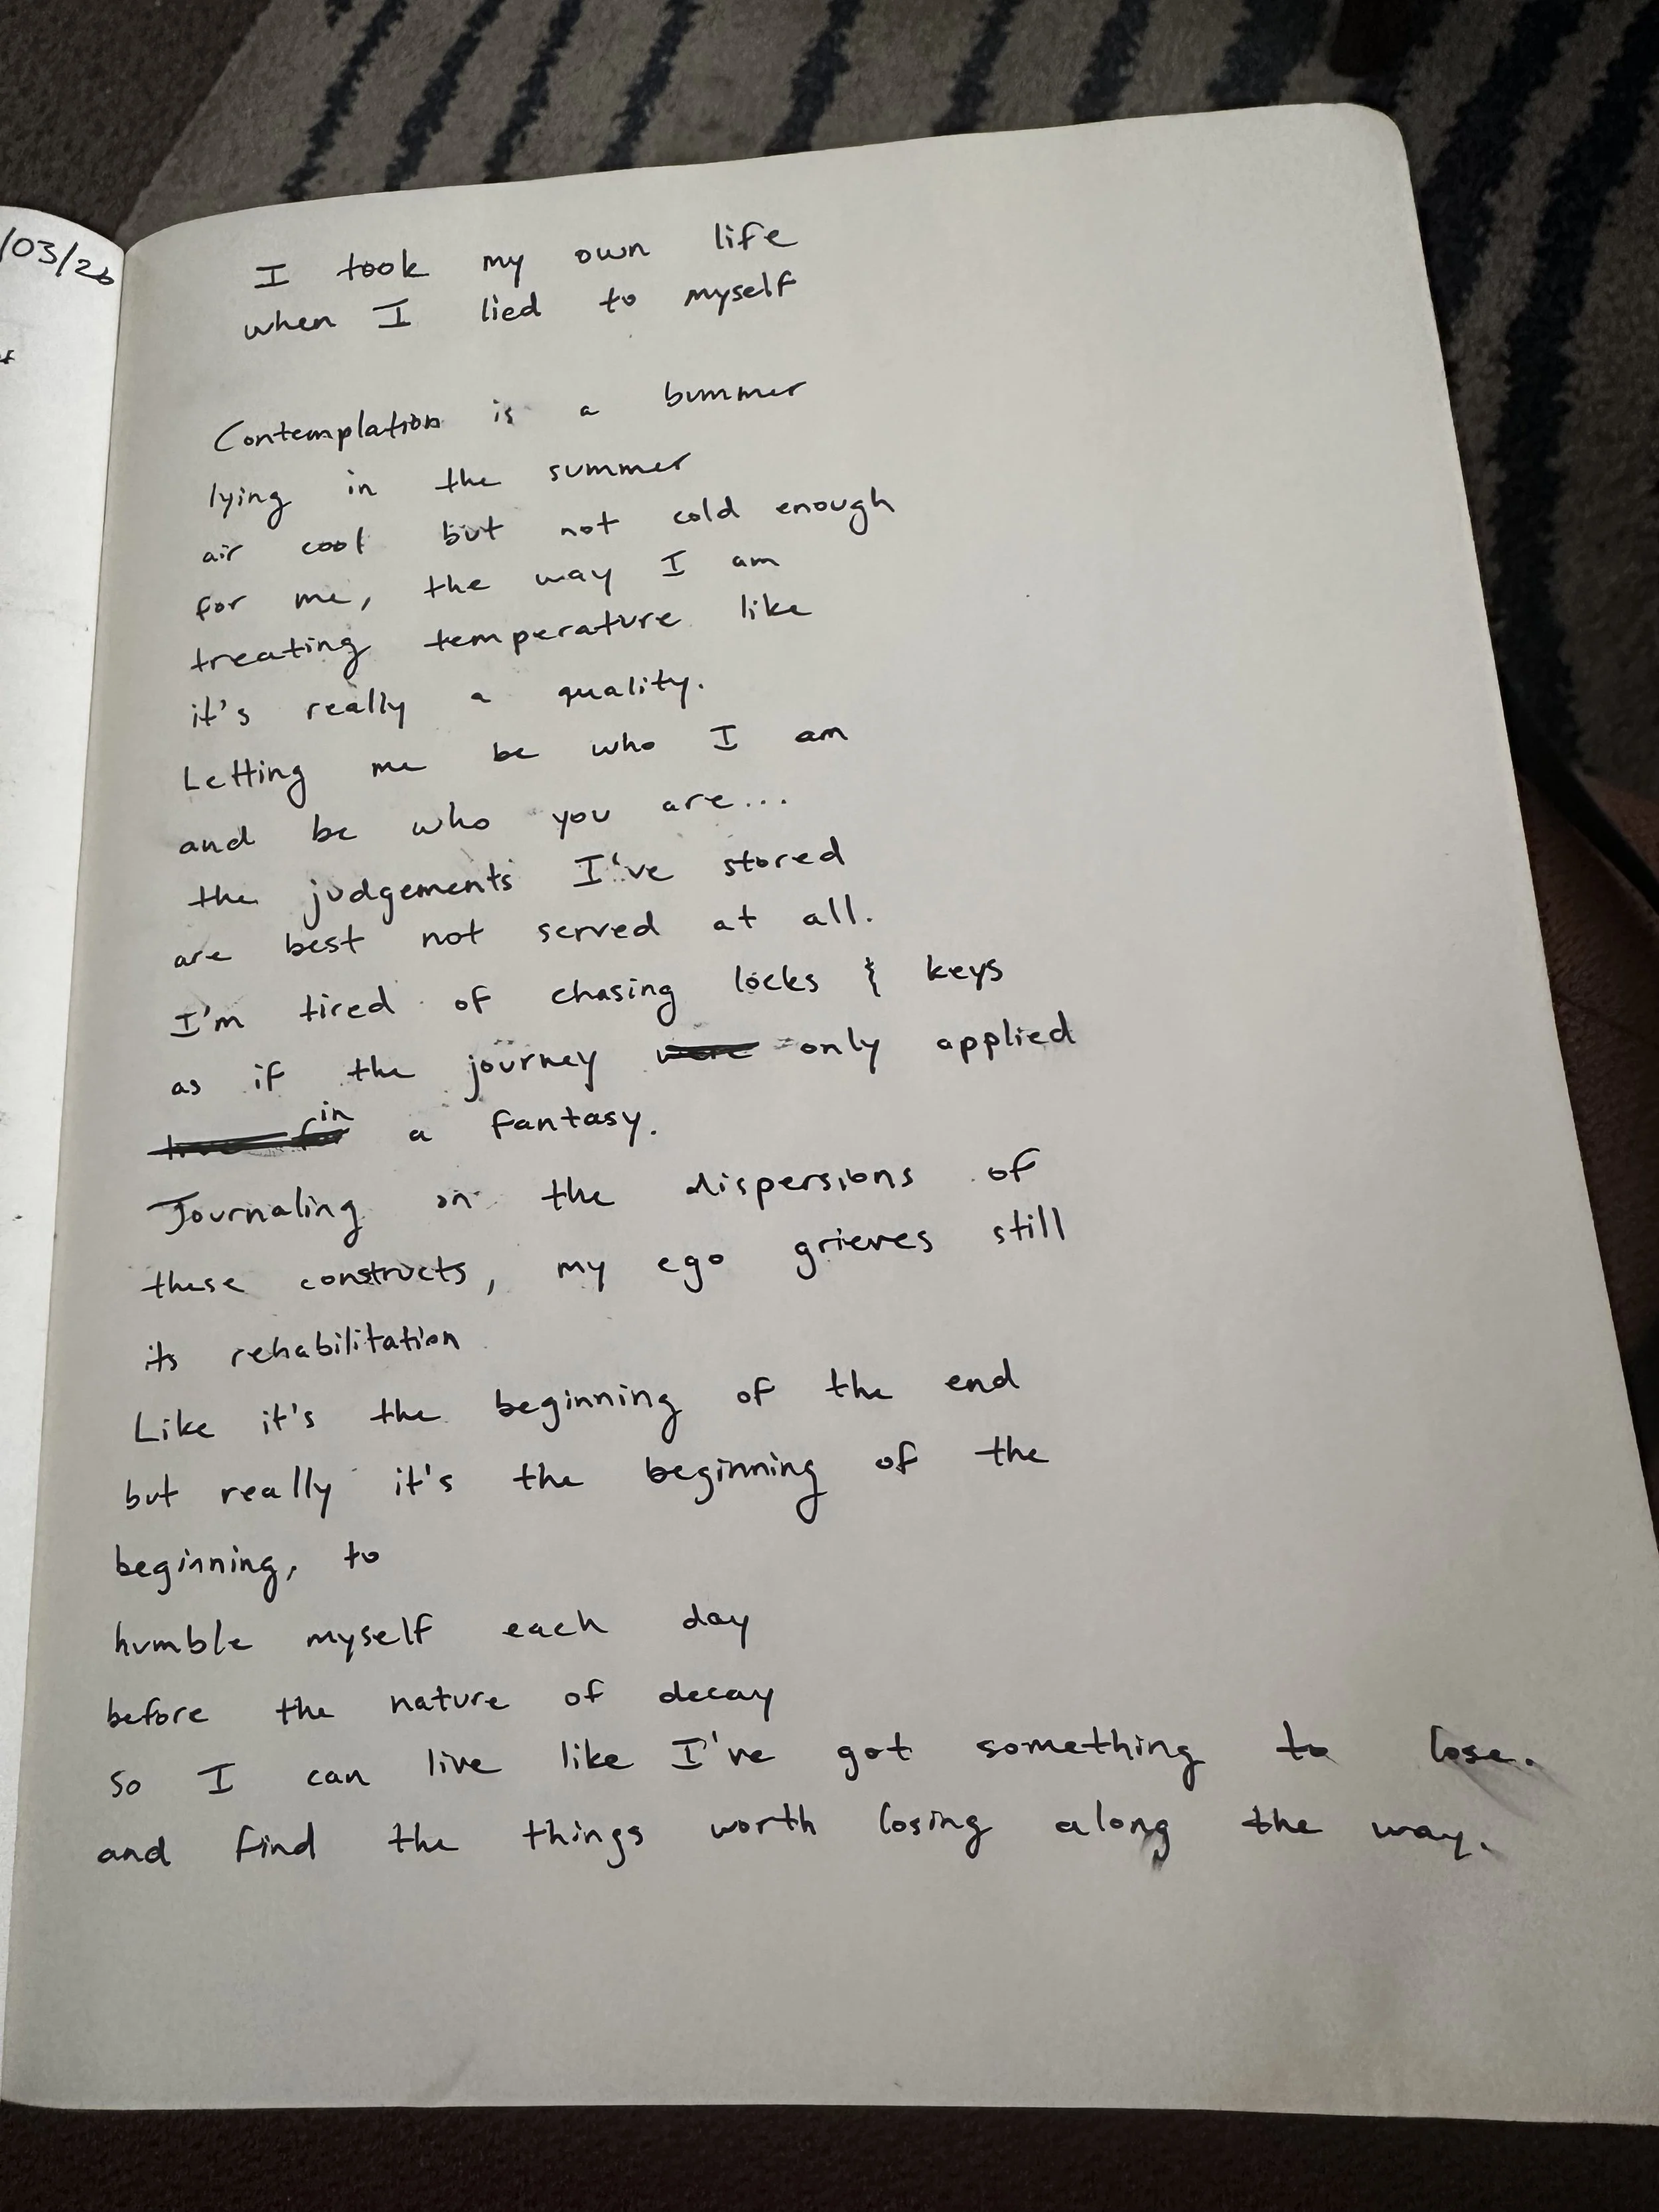 /03/26
I took my own life
when I lied to myself
Contemplation is a bummer
lying in the summer
air cool but not cold enough
for me, the way I am
treating temperature like
it's really a quality.
Letting me be who I am
and be who you are...
the judgements I've stored
are best not served at all.
I'm tired of chasing locks & keys
as if the journey only applied
in a fantasy.
Journaling on the dispersions of
these constructs, my ego grieves still
its rehabilitation
Like it's the beginning of the end
but really it's the beginning of the
beginning, to
humble myself each day
before the nature of decay
so I can live like I've got something to lose.
and find the things worth losing along the way.